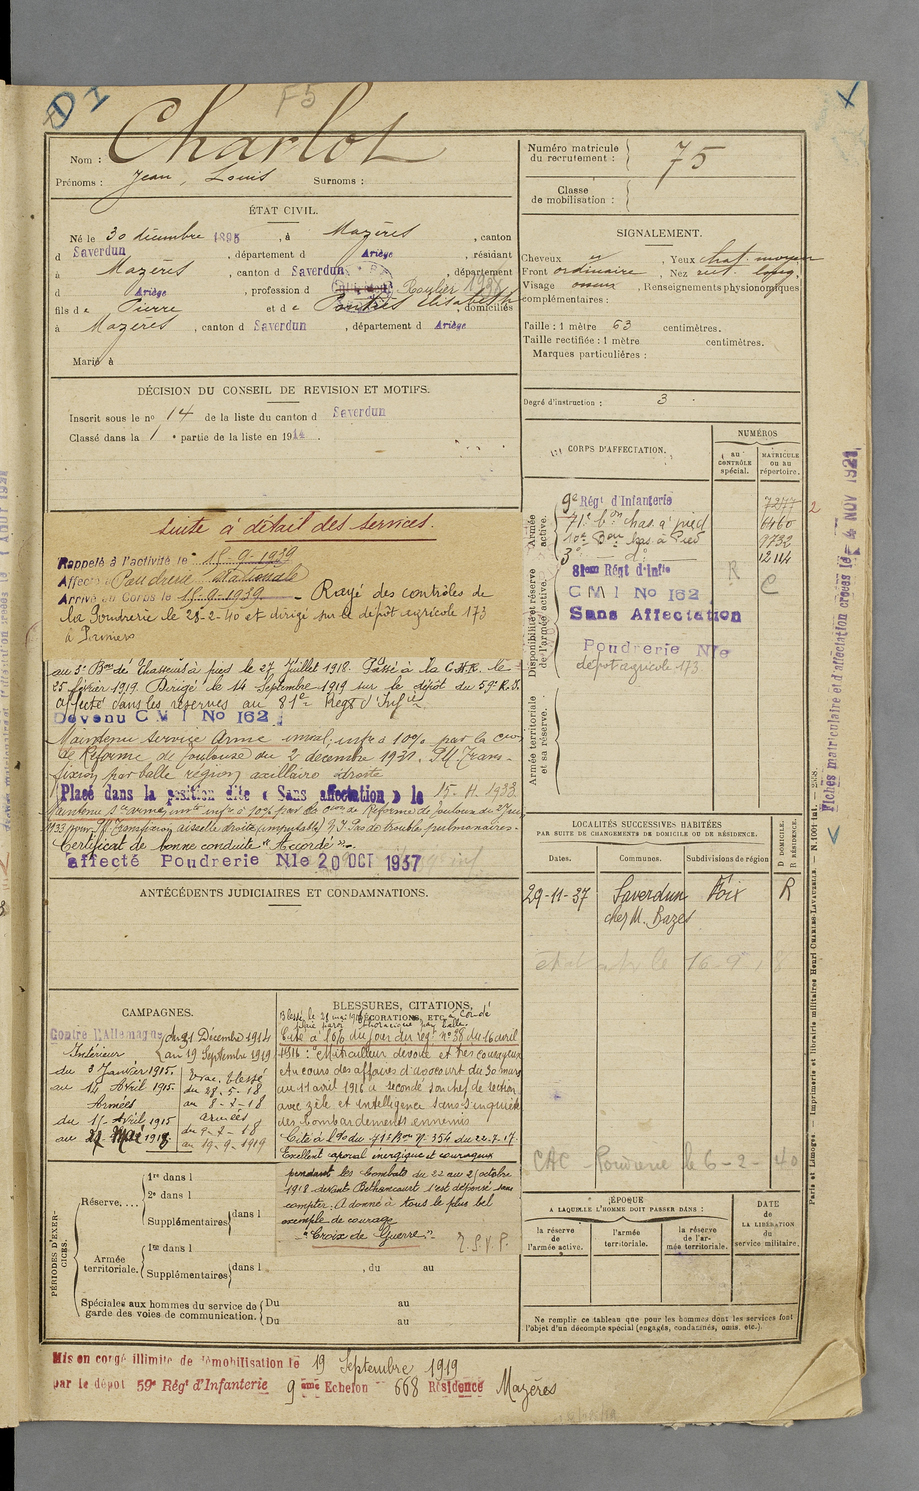 D I
F5
Nom : Charlot
Prénoms : Jean, Louis Surnoms :
ÉTAT CIVIL.
Né le 30 décembre 1895, à Mazères, canton
d Saverdun, département d Ariège, résidant
à Mazères, canton d Saverdun, département
d Ariège, profession d Roulier 1938
fils de Pierre et de Pontrés Elisabeth, domiciliés
à Mazères, canton d Saverdun, département d Ariège
Marié à
DÉCISION DU CONSEIL DE REVISION ET MOTIFS.
Inscrit sous le nº 14 de la liste du canton d Saverdun
Classé dans la 1 e partie de la liste en 1914.
Suite à détail des services.
Rappelé à l'activité le 15-9-1939
Affecté Poudrerie Nationale
Arrivé au Corps le 15-9-1939 - Rayé des contrôles de
la Poudrerie le 28-2-40 et dirigé sur le dépôt agricole 173
à Pamiers
au 3e Bon de Chasseurs à pied le 27 Juillet 1918. Passé à la C.H.R. le
25 février 1919. Dirigé le 14 Septembre 1919 sur le dépôt du 59e R.I.
Affecté dans les réserves au 81e Régt d'Infie
Devenu C M I No 162
Maintenu service armé inval; infre à 10% par la con
de Réforme de Toulouse du 2 décembre 1931. Pr Trans-
fixion par balle région axillaire droite
Placé dans la position dite « Sans affectation » le 15-11-1933
Certificat de bonne conduite "Accordé".
affecté Poudrerie Nle 20 OCT 1937
ANTÉCÉDENTS JUDICIAIRES ET CONDAMNATIONS.
CAMPAGNES.
Contre l'Allemagne du 21 Décembre 1914
au 19 Septembre 1919
Intérieur
du 3 Janvier 1915
au 14 Avril 1915
Armées
du 15 Avril 1915
au 28 Mai 1918
Evac. blessé
du 28-5-18
au 8-7-18
Armées
du 9-7-18
au 19-9-1919
BLESSURES, CITATIONS,
DÉCORATIONS, ETC.
Blessé le 28 mai 1918 à Condé
plaie paroi thoracique par balle.
Cité à l'o/o du jour du régt nº 38 du 16 avril
1916 : "Mitrailleur dévoué et très courageux
Au cours des affaires d'Avocourt du 30 mars
au 11 avril 1916 a secondé son chef de section
avec zèle et intelligence sans s'inquiéter
des bombardements ennemis
Cité à l'o du 71e Bon Nº 354 du 22-7-17.
Excellent caporal énergique et courageux
pendant les combats du 22 au 25 octobre
1918 devant Bethancourt s'est dépensé sans
compter. A donné à tous le plus bel
exemple de courage
"Croix de Guerre".
T.S.V.P.
PÉRIODES D'EXERCICES.
Réserve, . . . . 1re dans l
2e dans l
Supplémentaires dans l
Armée territoriale. 1re dans l
Supplémentaires dans l , du au
Spéciales aux hommes du service de garde des voies de communication. Du au
Du au
Mis en congé illimité de démobilisation le 19 Septembre 1919
par le dépôt 59e Régt d'Infanterie 9 ème Echelon 668 Résidence Mazères
Numéro matricule
du recrutement : 75
Classe
de mobilisation :
SIGNALEMENT.
Cheveux , Yeux chat. moyen
Front ordinaire, Nez rect. long,
Visage , Renseignements physionomiques
complémentaires :
Taille : 1 mètre 63 centimètres.
Taille rectifiée : 1 mètre centimètres.
Marques particulières :
Degré d'instruction : 3
CORPS D'AFFECTATION.
NUMÉROS
au CONTRÔLE spécial.
MATRICULE ou au répertoire.
Armée active.
9e Régt d'Infanterie 7277
71e bon chas à pied 6460
10e Bon chas à Pied 9732
3e do 12114
Disponibilité et réserve de l'armée active.
81eme Régt d'Infie R
C M I No 162 C
Sans Affectation
Poudrerie Nle
dépôt agricole 173
Armée territoriale et sa réserve.
LOCALITÉS SUCCESSIVES HABITÉES
PAR SUITE DE CHANGEMENTS DE DOMICILE OU DE RÉSIDENCE.
Dates. Communes. Subdivisions de région D DOMICILE. R RÉSIDENCE.
29-11-37 Saverdun Foix R
chez M. Bazes
CAC Poudrerie le 6-2-40
ÉPOQUE
A LAQUELLE L'HOMME DOIT PASSER DANS :
la réserve de l'armée active.
l'armée territoriale.
la réserve de l'armée territoriale.
DATE de LA LIBÉRATION du service militaire.
Ne remplir ce tableau que pour les hommes dont les services font
l'objet d'un décompte spécial (engagés, condamnés, omis. etc.).
Paris et Limoges. — Imprimerie et librairie militaires Henri CHARLES-LAVAUZELLE.
Fiches matriculaire et d'affectation créées le 4 NOV 1921